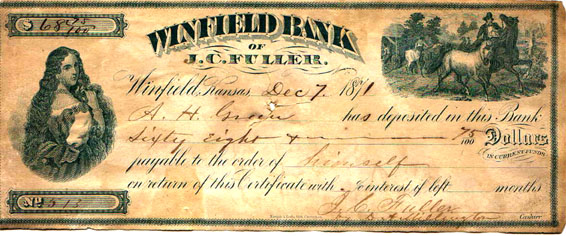 $68 75/100
WINFIELD BANK
OF
J.C. FULLER.
Winfield, Kansas, Dec 7. 1871
A. H. Green has deposited in this Bank
Sixty Eight & 75/100 Dollars
IN CURRENT FUNDS
payable to the order of himself
on return of this Certificate with interest if left months
J. C. Fuller
Cashier
No.